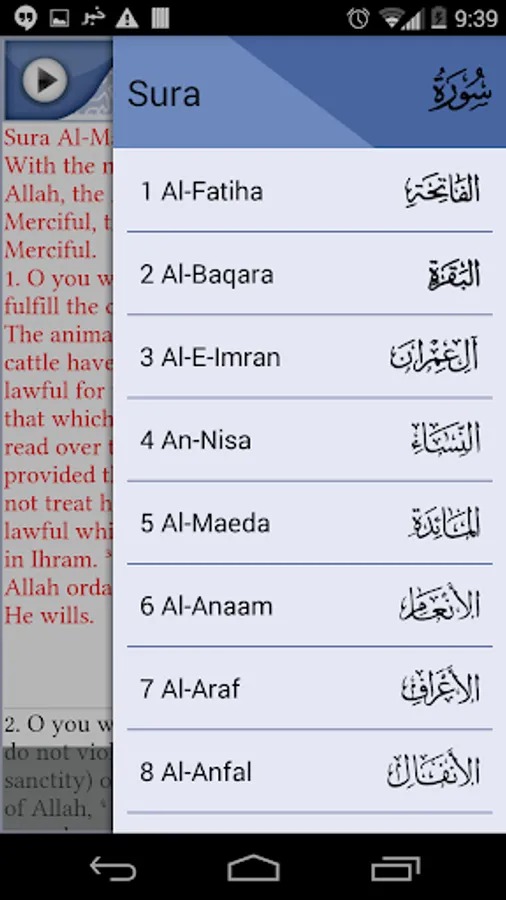 خبر
9:39
Sura سُورَةُ
1 Al-Fatiha الفَاتِحَة
2 Al-Baqara البَقَرَة
3 Al-E-Imran آل عِمْرَان
4 An-Nisa النِّسَاء
5 Al-Maeda المَائِدَة
6 Al-Anaam الأَنْعَام
7 Al-Araf الأَعْرَاف
8 Al-Anfal الأَنْفَال
Sura Al-Ma
With the n
Allah, the
Merciful, t
Merciful.
1. O you w
fulfill the
The anima
cattle have
lawful for
that which
read over t
provided t
not treat h
lawful whi
in Ihram.
Allah orda
He wills.
2. O you w
do not viol
sanctity) o
of Allah,